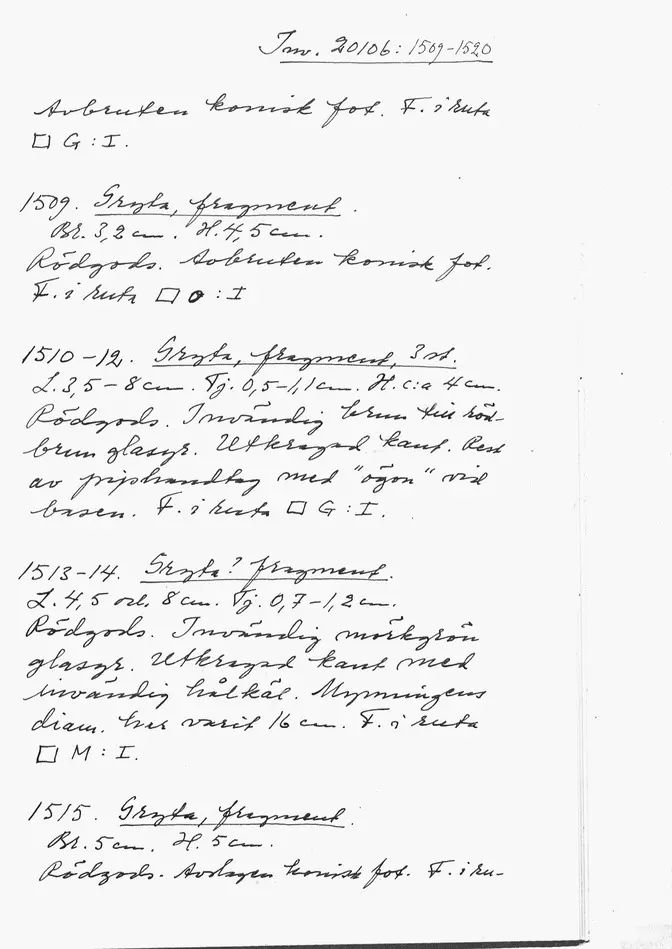 Inv. 20106: 1509-1520
Avbruten konisk fot. F. i ruta
□ G : I.
1509. Gryta, fragment.
Br. 3,2 cm. H. 4,5 cm.
Rödgods. Avbruten konisk fot.
F. i ruta □ O : I
1510-12. Gryta, fragment, 3 st.
L. 3,5 - 8 cm. Tj. 0,5-1,1 cm. H. c:a 4 cm.
Rödgods. Invändig brun till röd-
brun glasyr. Utkragad kant. Rest
av piphandtag med "ögon" vid
basen. F. i ruta □ G : I.
1513-14. Gryta? fragment.
L. 4,5 och 8 cm. Tj. 0,7-1,2 cm.
Rödgods. Invändig mörkgrön
glasyr. Utkragad kant med
invändig hålkäl. Mynningens
diam. har varit 16 cm. F. i ruta
□ M : I.
1515. Gryta, fragment.
Br. 5 cm. H. 5 cm.
Rödgods. Avslagen konisk fot. F. i ru-